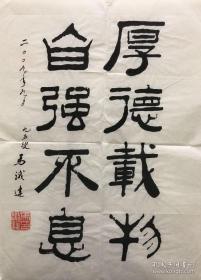 厚德載物
自强不息
二〇〇九年九月
九五叟
馬識途